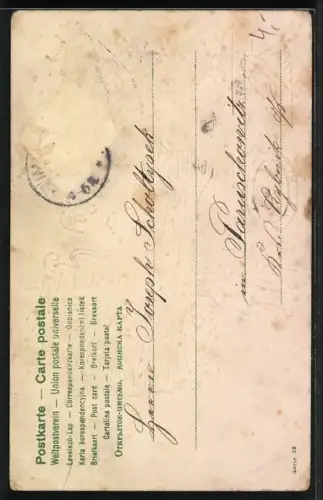 Postkarte — Carte postale
Weltpostverein — Union postale universelle
Levelező-Lap — Correspondenzkarte — Dopisnice
Karta korespondencyjna — Korespondenční lístek
Briefkaart — Post card — Brefkort — Brevkort
Cartolina postale — Tarjeta postal
ОТКРЫТОЕ-ПИСЬМО. ДОПИСНА КАРТА
Joseph Scholtysek
in Paruschowitz
Serie 28
4,-